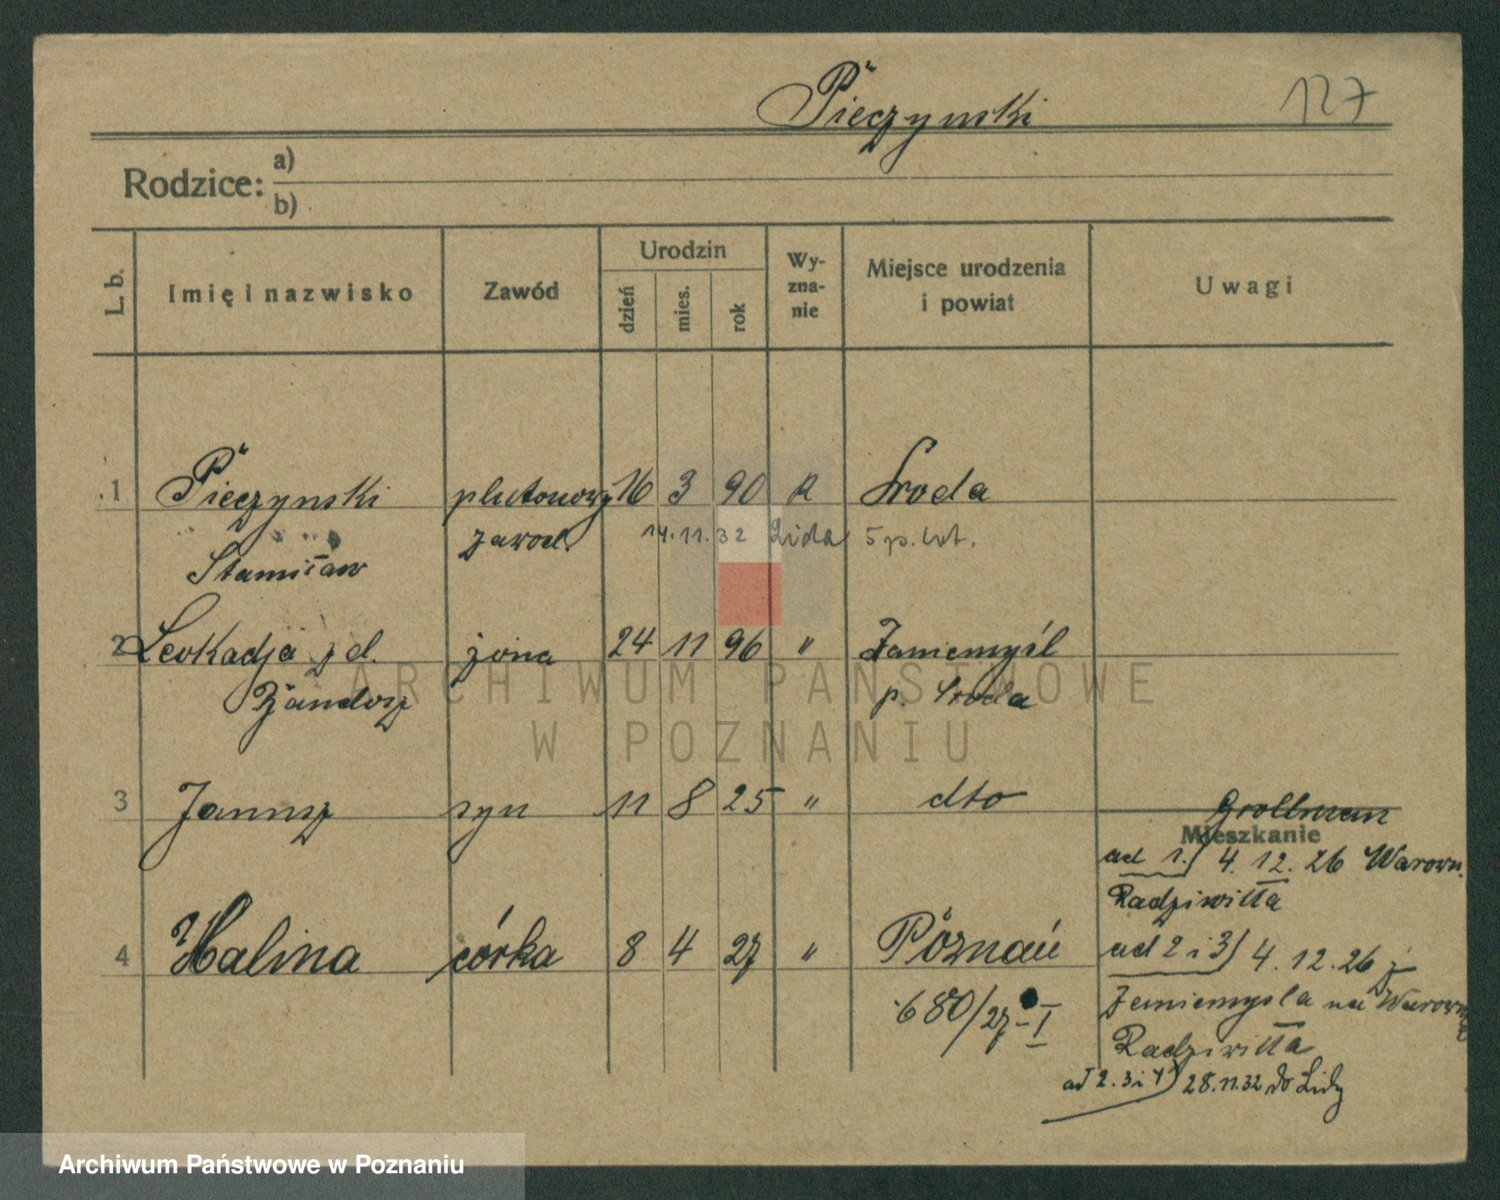 Pieczynski
127
Rodzice: a)
b)
L. b.
Imię i nazwisko
Zawód
Urodzin
dzień
mies.
rok
Wy-
zna-
nie
Miejsce urodzenia
i powiat
Uwagi
1 Pieczynski plutonowy 16 3 90 R Sroda
Stanisław zawod. 14.11.32 Lida 5 p. lot.
2 Leokadja z d. żona 24 11 96 " Zaniemyśl
p. Sroda
3 Janusz syn 11 8 25 " dto
Grollman
Mieszkanie
ad 1.) 4. 12. 26 Warown.
Radziwiłła
4 Halina córka 8 4 27 " Poznań
ad 2 i 3) 4. 12. 26 z
680/27-I
Zaniemysla na Warown
Radziwiłła
ad 2. 3 i 4) 28.11.32 do Lidy
ARCHIWUM PAŃSTWOWE
W POZNANIU
Archiwum Państwowe w Poznaniu